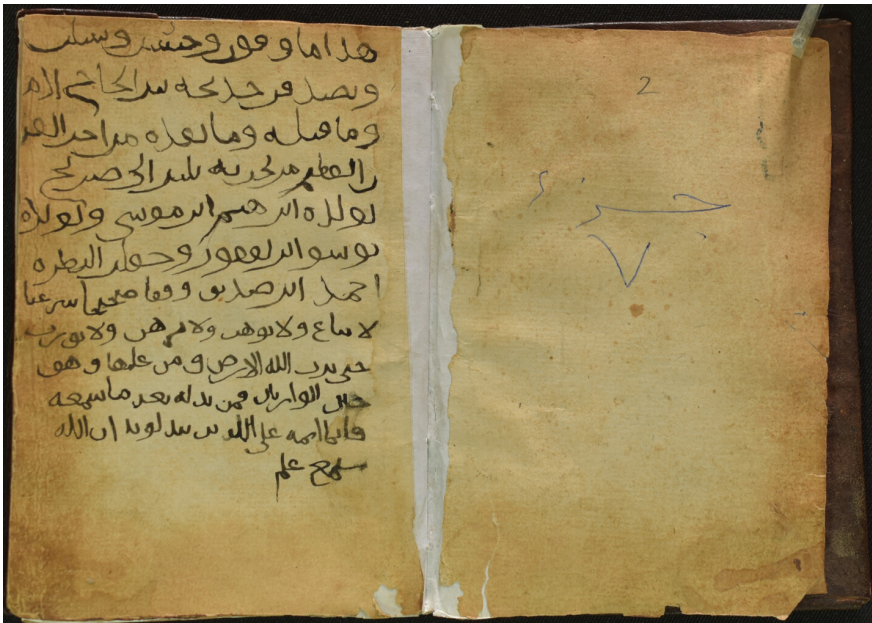 2
جزء
٧
هذا ما وقف وحبس وسبل
وتصدق خديجه بنت الحاج
وما قبله وما بعده من اجزا القر
ان العظيم خديجه بنت الحاج صالح
لولده ابرهيم ابن موسى ولولده
يوسف ابن يعقوب وجعل النظره
احمد ابن صديق وقفا صحيحا شرعيا
لا يباع ولا يوهب ولا يرهن ولا يورث
حتى يرث الله الارض ومن عليها وهو
خير الوارثين فمن بدله بعد ما سمعه
فانما اثمه على الذين يبدلونه ان الله
سميع عليم